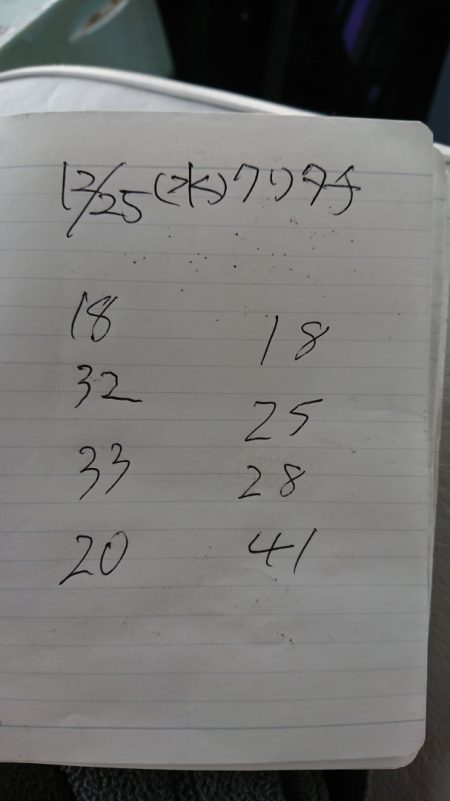 12/25(水)クリタチ
18
32
33
20
18
25
28
41